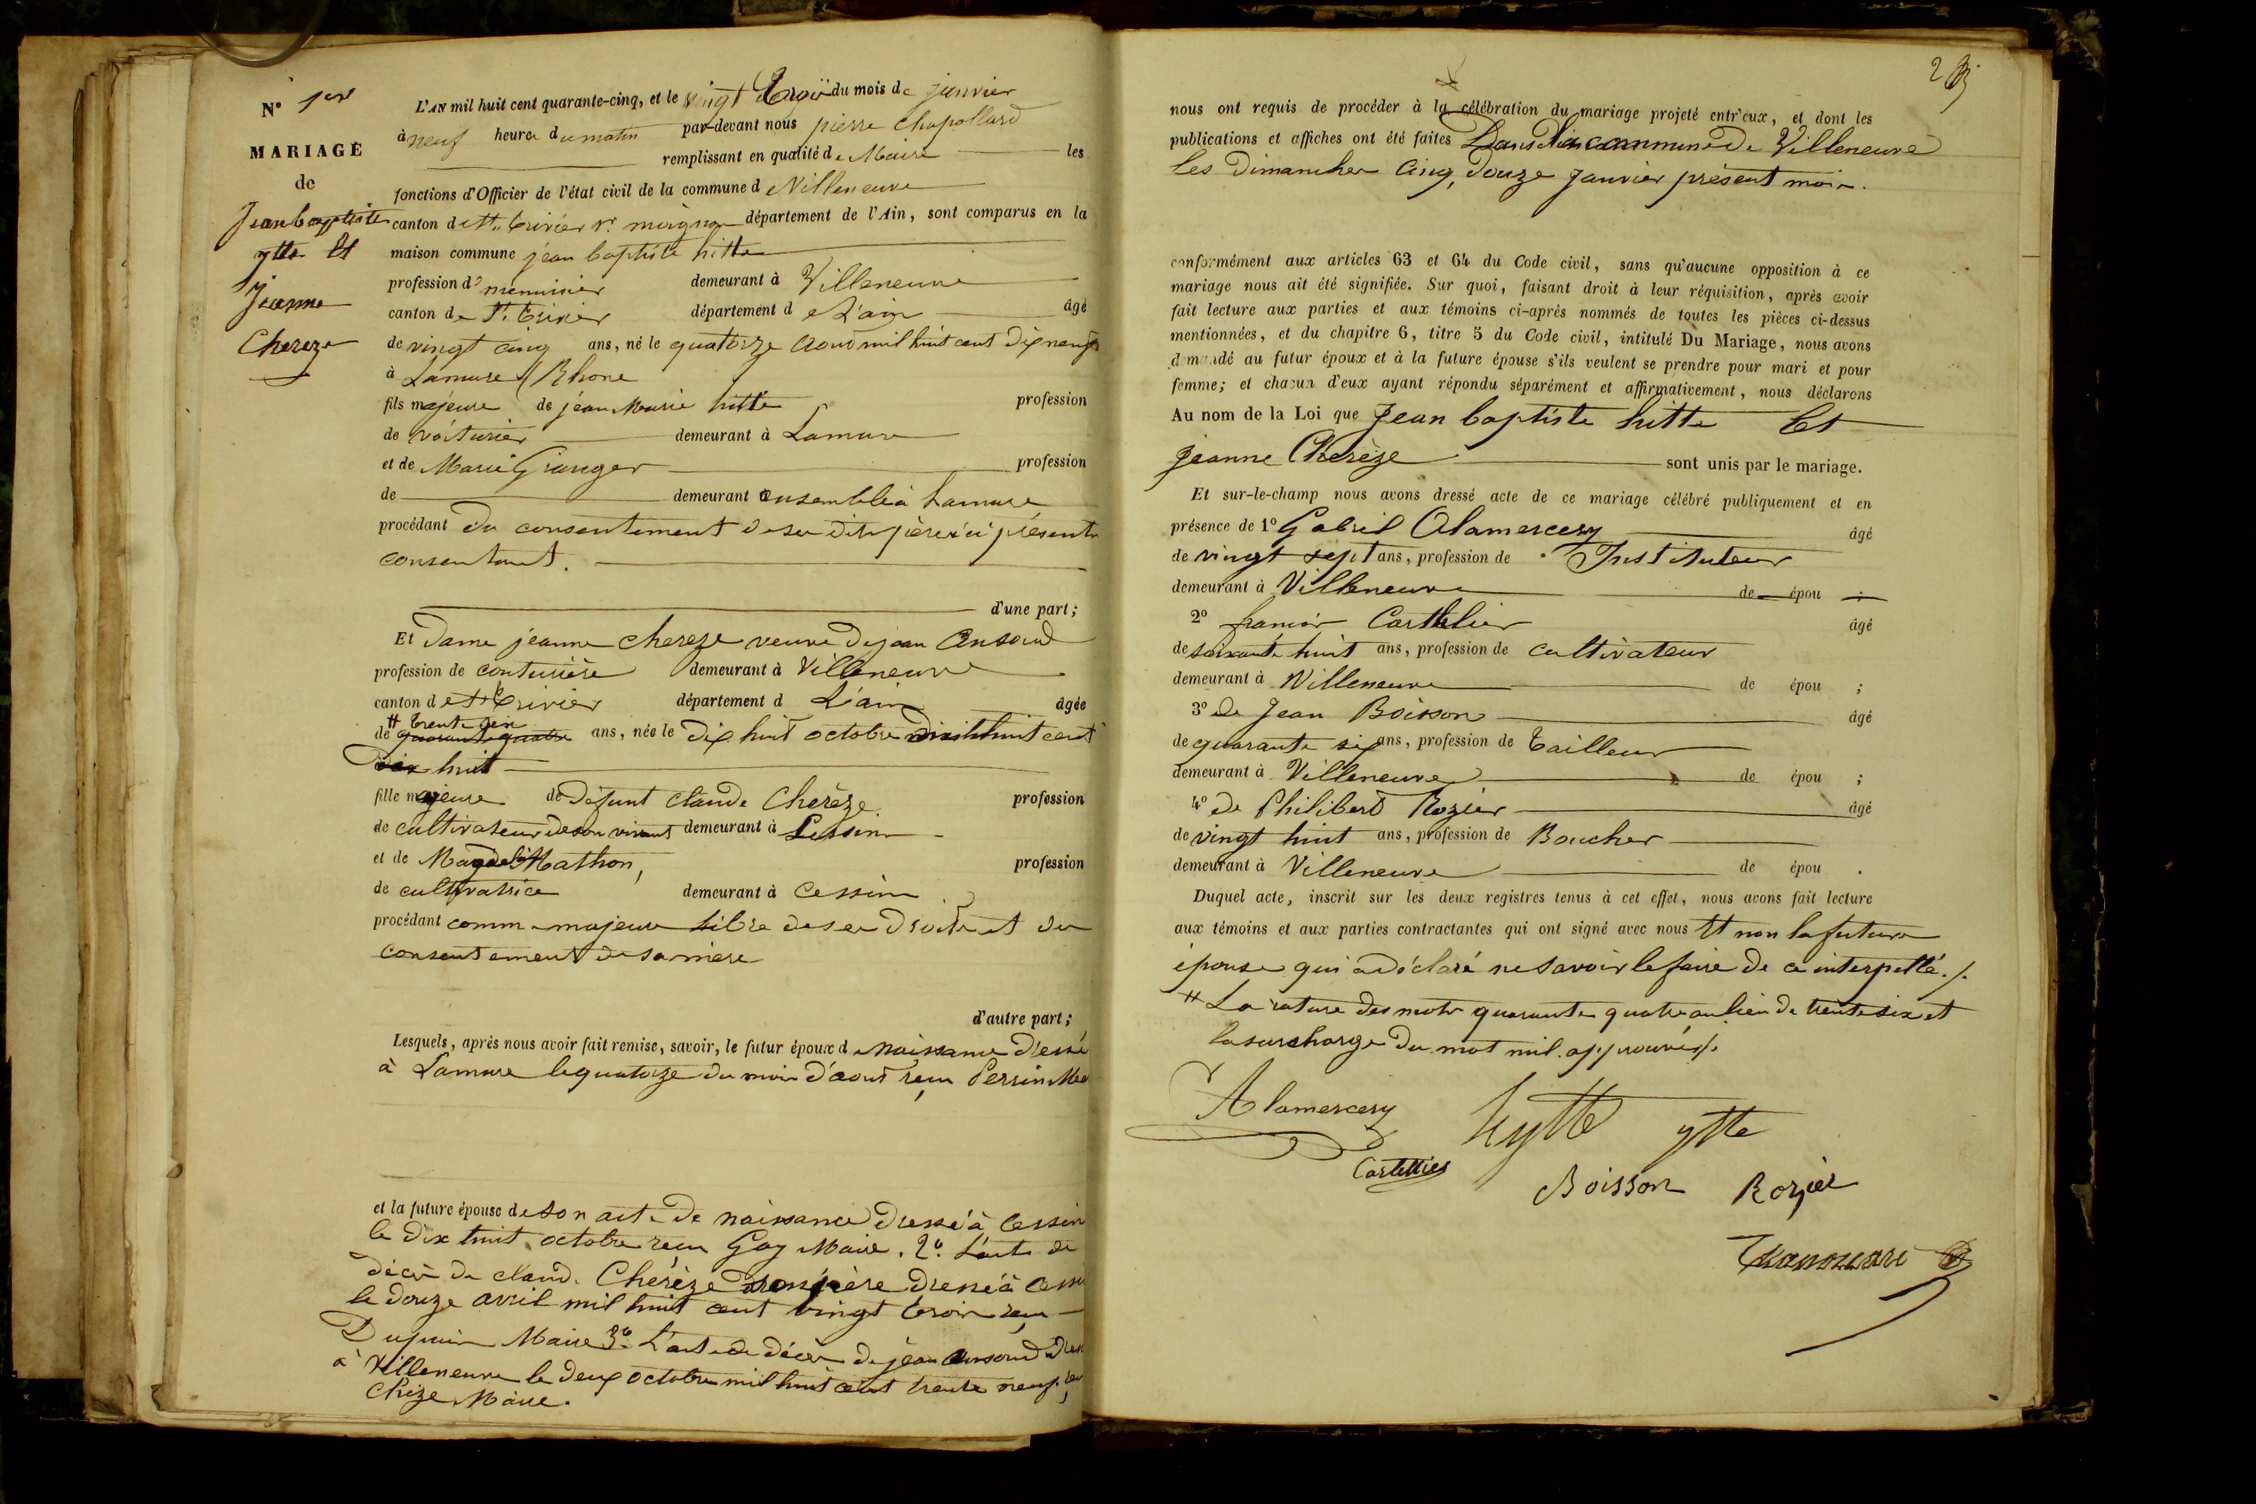 N° 1er
MARIAGE
de
Jean baptiste
ytte Et
Jeanne
Chereze
L'AN mil huit cent quarante-cinq, et le vingt trois du mois de janvier
à neuf heure du matin par-devant nous pierre Chapollard
remplissant en qualité de Maire les
fonctions d'Officier de l'état civil de la commune de Villeneuve
canton de St. trivier Sr. moignan département de l'Ain, sont comparus en la
maison commune jean baptiste hitte
profession de menuisier demeurant à Villeneuve
canton de St. trivier département de L'ain âgé
de vingt cinq ans, né le quatorze aout mil huit cent dix neuf
à Lamure (Rhone
fils majeure de jean Marie hitte profession
de voiturier demeurant à Lamure
et de Marie Granger profession
de demeurant ensemble à Lamure
procédant du consentement de ses dits père ici présents
consentant.
d'une part;
Et Dame jeanne chereze veuve de jean Ansoud
profession de couturière demeurant à Villeneuve
canton de St trivier département d L'ain âgée
# trente six
de quarante quatre ans, née le dix huit octobre mil huit cent
dix huit
fille majeure de défunt claude Cherèze profession
de cultivateur de son vivant demeurant à Cessin
et de Magdel. Mathon, profession
de cultivatrice demeurant à Cessin
procédant comme majeure libre de ses droits et du
consentement de sa mère
d'autre part;
Lesquels, après nous avoir fait remise, savoir, le futur époux de Naissance dressé
à Lamure le quatorze du mois d'aout reçu Perrin Mai
et la future épouse de son acte de naissance dressé à Cessin
le dix huit octobre reçu Gay Maire. 2° L'acte de
décès de claude Cherèze son père dressé à Cessi
le douze avril mil huit cent vingt trois reçu
Dupuis Maire 3° L'acte de décès de jean Ansoud dres
à Villeneuve le deux octobre mil huit cent trente neuf, reç
Chize Maire.
nous ont requis de procéder à la célébration du mariage projeté entr'eux, et dont les
publications et affiches ont été faites Dans la commune de Villeneuve
les Dimanches Cinq, douze janvier présent mois.
conformément aux articles 63 et 64 du Code civil, sans qu'aucune opposition à ce
mariage nous ait été signifiée. Sur quoi, faisant droit à leur réquisition, après avoir
fait lecture aux parties et aux témoins ci-après nommés de toutes les pièces ci-dessus
mentionnées, et du chapitre 6, titre 5 du Code civil, intitulé Du Mariage, nous avons
demandé au futur époux et à la future épouse s'ils veulent se prendre pour mari et pour
femme; et chacun d'eux ayant répondu séparément et affirmativement, nous déclarons
Au nom de la Loi que Jean baptiste hitte Et
jeanne Cherèze sont unis par le mariage.
Et sur-le-champ nous avons dressé acte de ce mariage célébré publiquement et en
présence de 1° Gabriel Alamercery âgé
de vingt sept ans, profession de Instituteur
demeurant à Villeneuve de épou ;
2° francois Carthelier âgé
de soixante huit ans, profession de cultivateur
demeurant à Villeneuve de épou ;
3° de Jean Boisson âgé
de quarante six ans, profession de tailleur
demeurant à Villeneuve de épou ;
4° de Philibert Rozier âgé
de vingt huit ans, profession de Boucher
demeurant à Villeneuve de épou .
Duquel acte, inscrit sur les deux registres tenus à cet effet, nous avons fait lecture
aux témoins et aux parties contractantes qui ont signé avec nous Et non la future
épouse qui a déclaré ne savoir le faire de ce interpellé./.
# La rature des mots quarante quatre au lieu de trente six et
la surcharge du mot mil. approuvés/.
Alamercery hytte ytte
Cartellier
Boisson Rozier